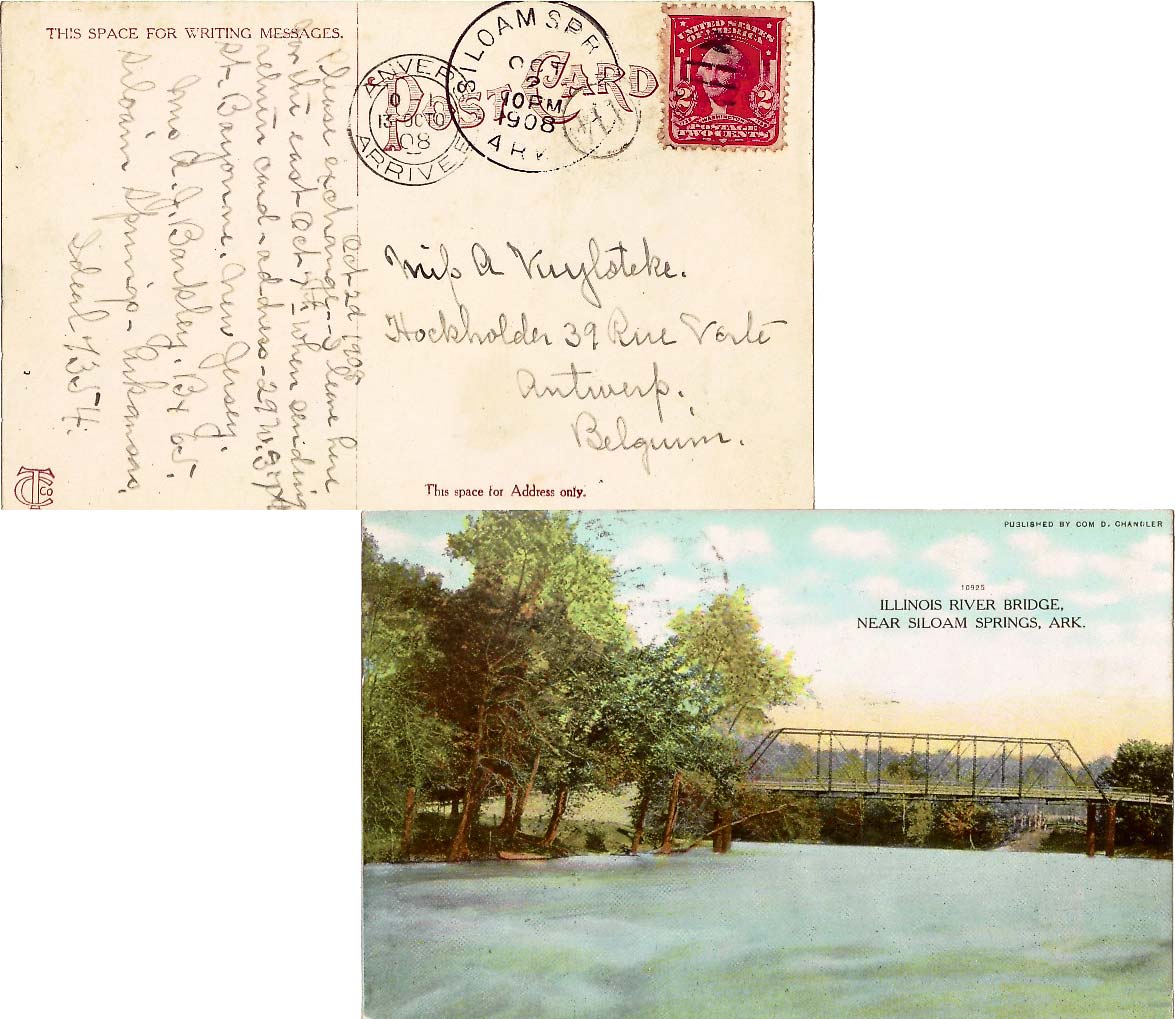 THIS SPACE FOR WRITING MESSAGES.
POST CARD
SILOAM SPR
OCT
2
10 PM
1908
ARK
ANVERS
13 OCTO
08
ARRIVEE
UNITED STATES
OF AMERICA
2 2
WASHINGTON
POSTAGE
TWO CENTS
Oct 2d 1908
Please exchange - I leave here
for the east Oct 7th - When sending
return card - address - 29 W. 39th
St Bayonne, New Jersey.
Mrs A. J. Barkley. Bx 65-
Siloam Springs - Arkansas.
Ideal 7354.
Miss A Vuylsteke.
Hockholder 39 Rue Verte
Antwerp.
Belguim.
This space for Address only.
TC CO
PUBLISHED BY COM D. CHANDLER
10925
ILLINOIS RIVER BRIDGE,
NEAR SILOAM SPRINGS, ARK.